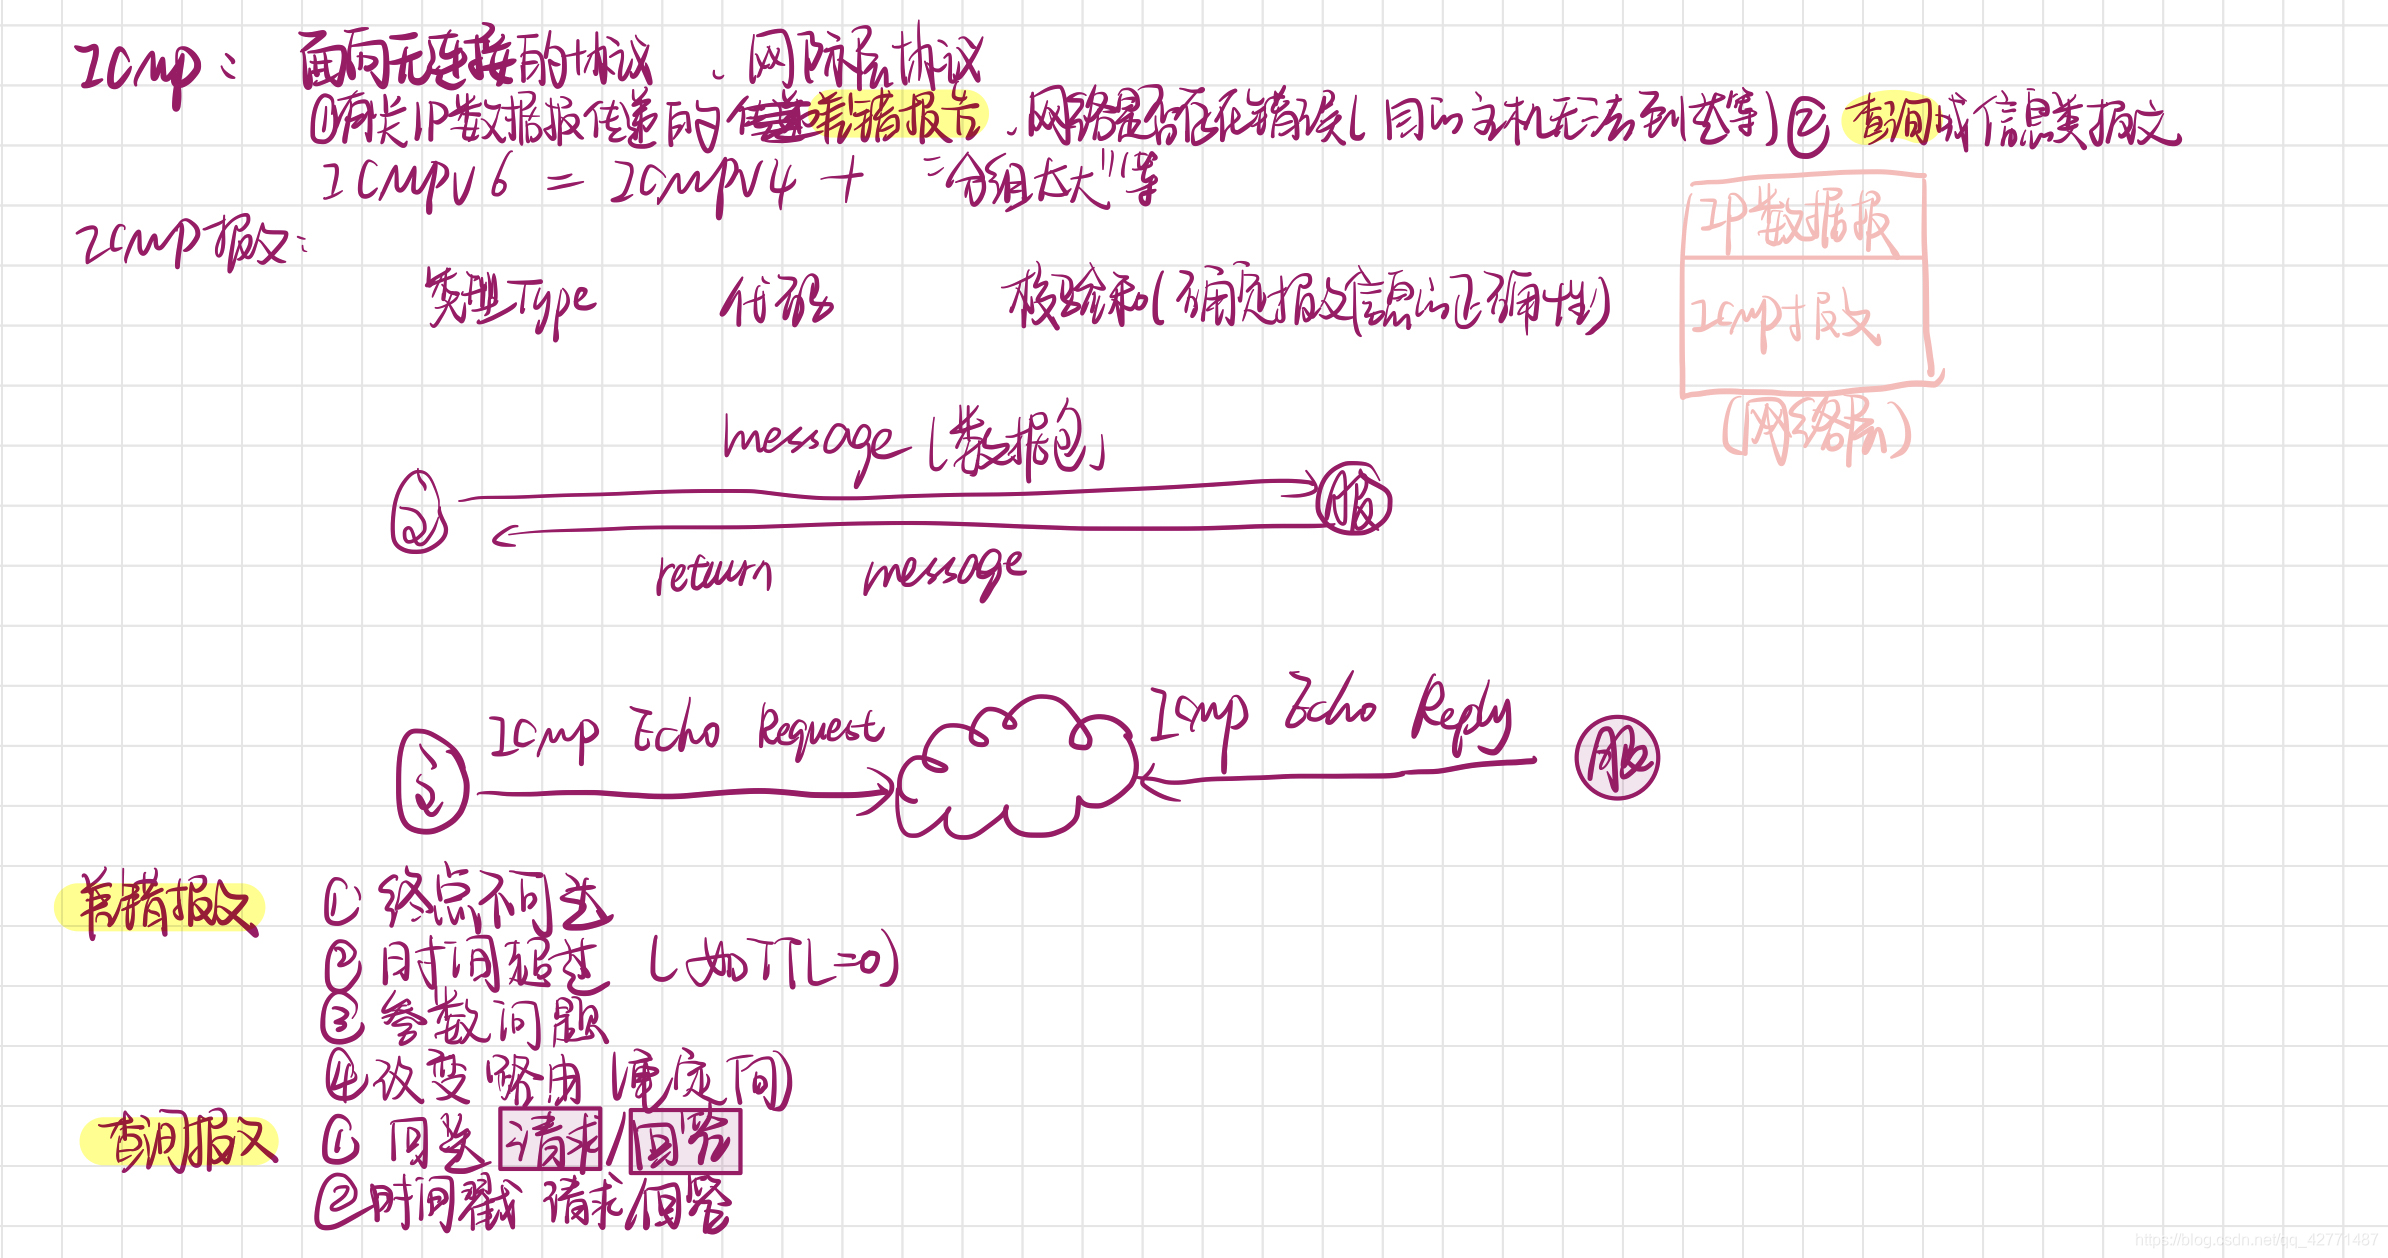 ICMP: 面向无连接的协议、网际层协议
①有关IP数据报传递的差错报告、网络是否存在错误(目的主机无法到达等)② 查询或信息类报文
ICMPv6 = ICMPv4 + "分组太大"等
IP数据报
ICMP报文:
类型Type 代码 校验和(确定报文信息的正确性)
ICMP报文
(网络层)
message (数据包)
服
return message
ICMP Echo Request
ICMP Echo Reply
服
差错报文 ① 终点不可达
② 时间超过 (如TTL=0)
③ 参数问题
④ 改变路由(重定向)
查询报文 ① 回送 请求/回答
② 时间戳 请求/回答
https://blog.csdn.net/qq_42771487